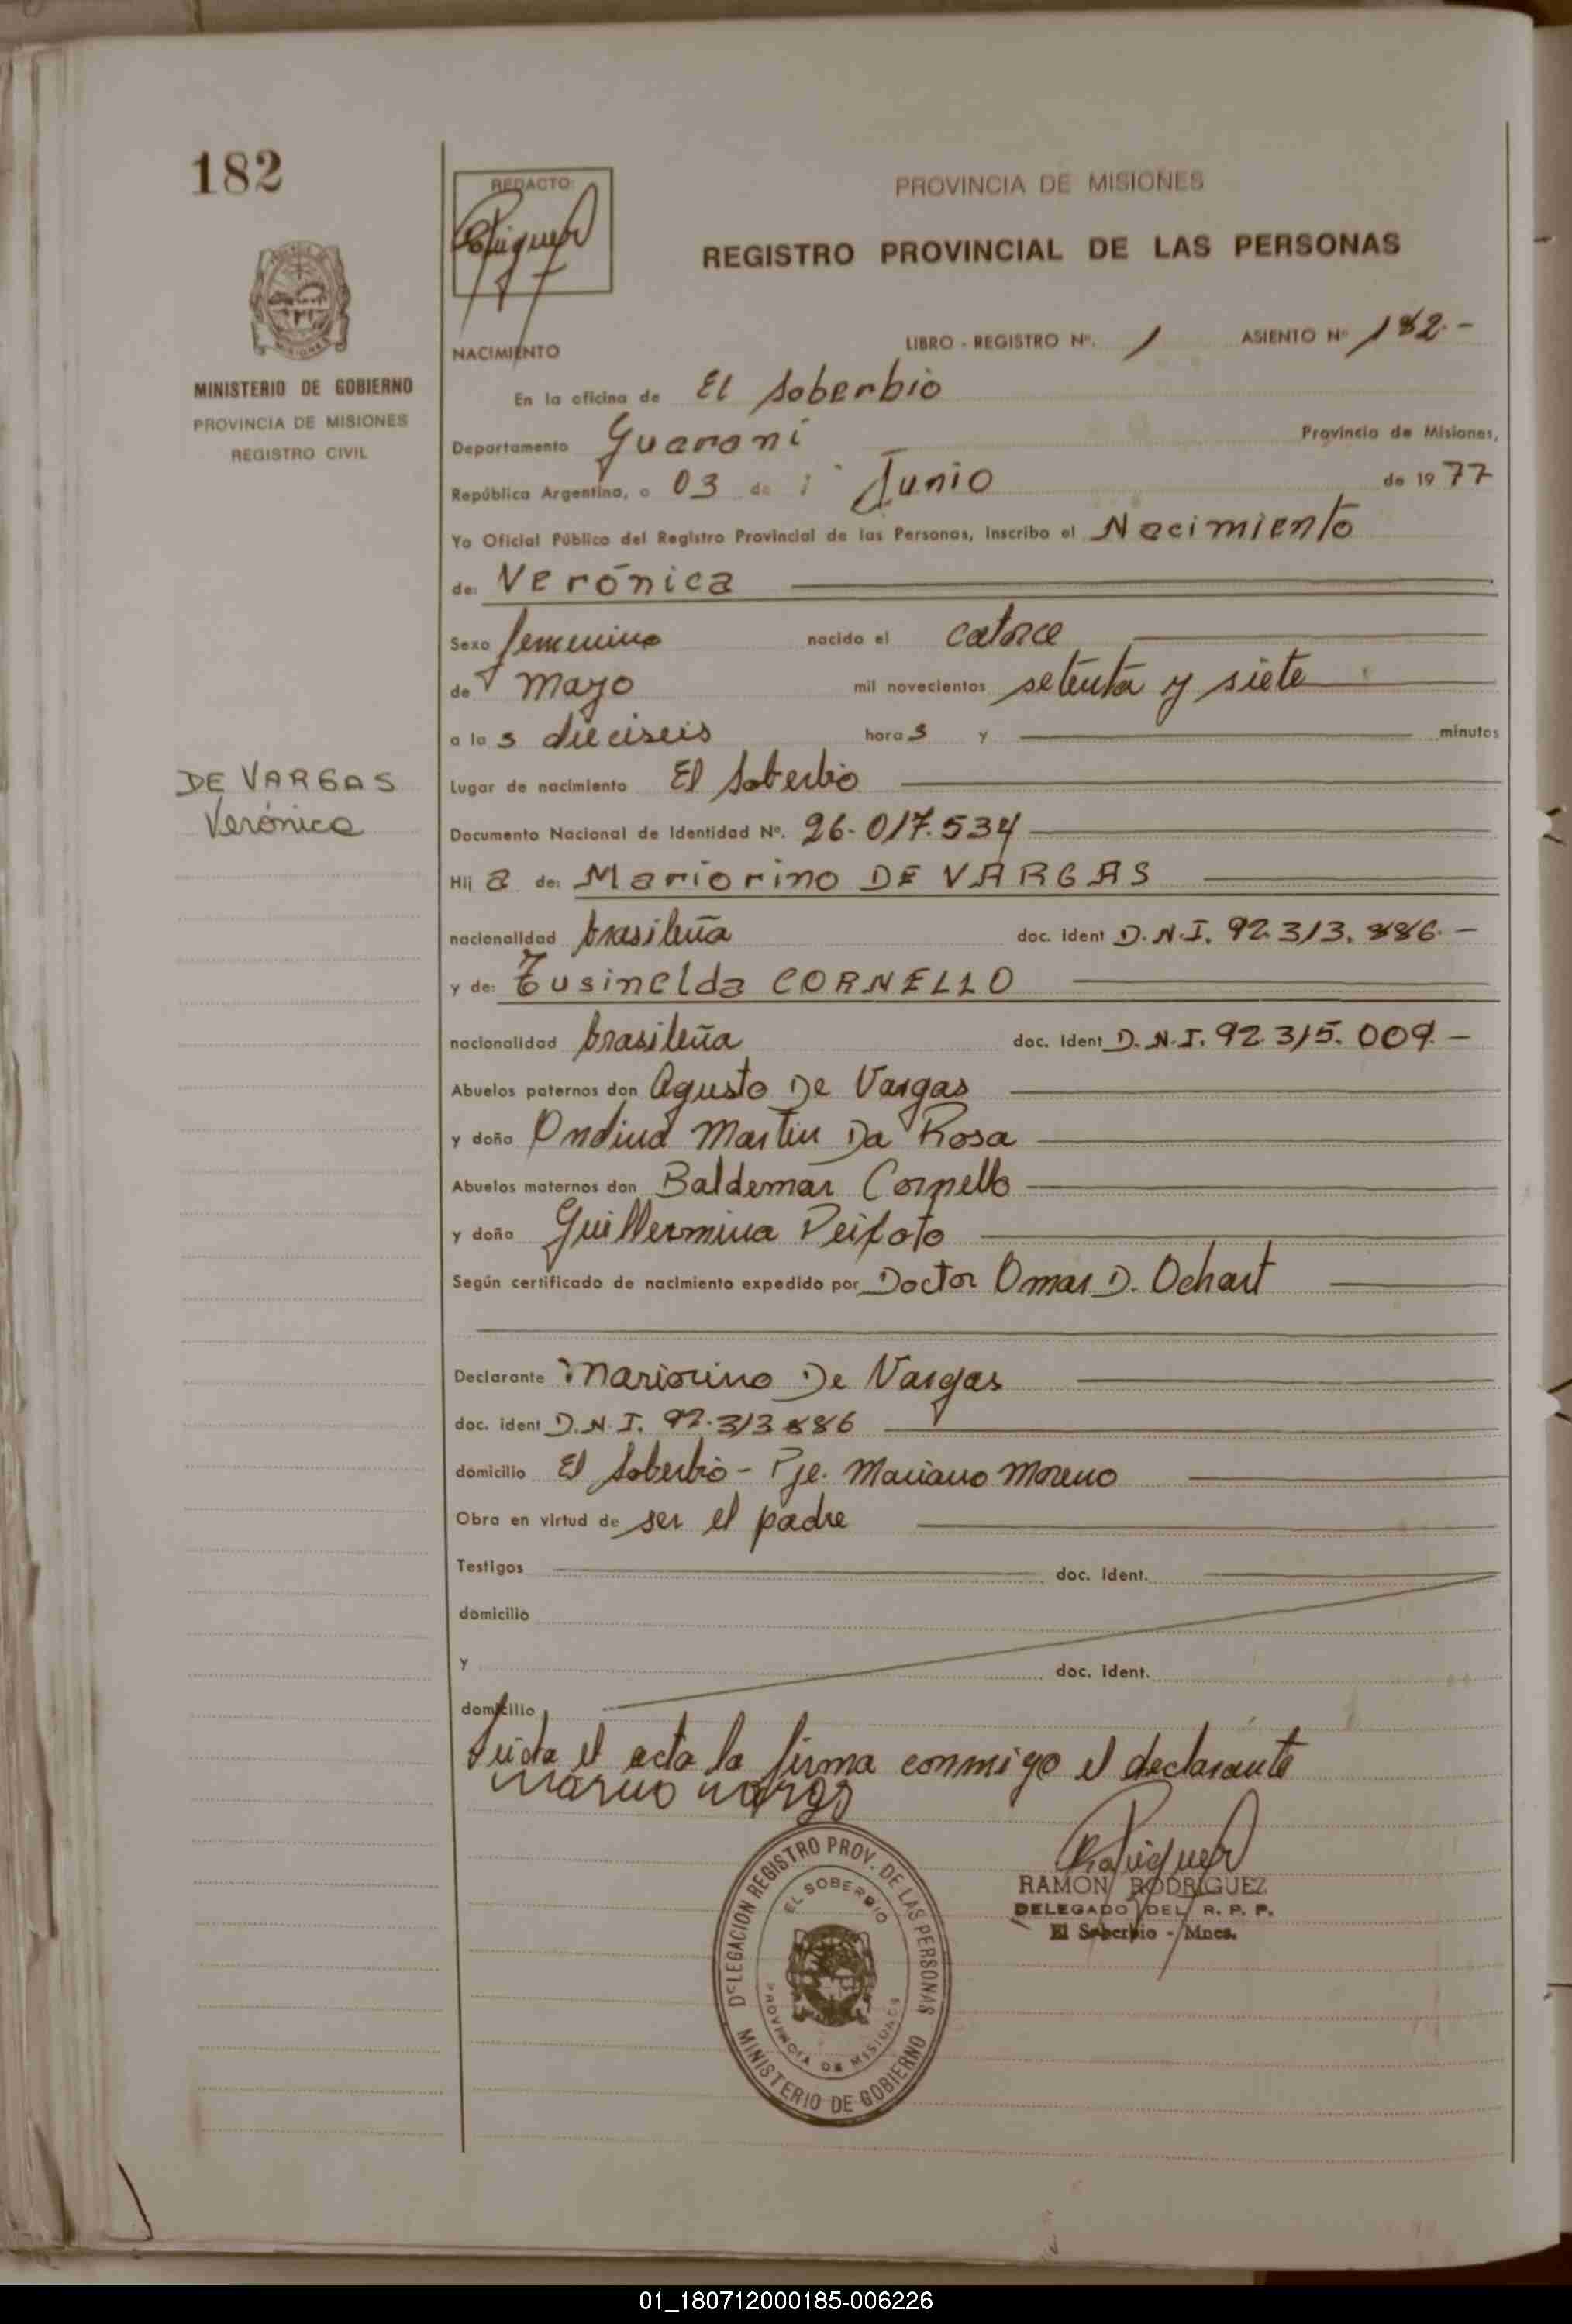 182
MINISTERIO DE GOBIERNO
PROVINCIA DE MISIONES
REGISTRO CIVIL
DE VARGAS
Verónica
REDACTO:
PROVINCIA DE MISIONES
REGISTRO PROVINCIAL DE LAS PERSONAS
NACIMIENTO
LIBRO - REGISTRO Nº. 1 ASIENTO Nº 182.-
En la oficina de El Soberbio
Departamento Guaraní Provincia de Misiones,
República Argentina, a 03 de Junio de 1977
Yo Oficial Público del Registro Provincial de las Personas, Inscribo el Nacimiento
de: Verónica
Sexo femenino nacido el catorce
de mayo mil novecientos setenta y siete
a las dieciseis horas y minutos
Lugar de nacimiento El Soberbio
Documento Nacional de Identidad Nº. 26.017.534
Hija de: Mariorino DE VARGAS
nacionalidad brasileña doc. ident D.N.I. 92.313.886.-
y de: Tusinelda CORNELLO
nacionalidad brasileña doc. Ident D.N.I. 92.315.009.-
Abuelos paternos don Agusto De Vargas
y doña Ondina Martin Da Rosa
Abuelos maternos don Baldemar Cornello
y doña Guillermina Peixoto
Según certificado de nacimiento expedido por Doctor Omar D. Ochart
Declarante Mariorino De Vargas
doc. ident D.N.I. 92.313886
domicilio El Soberbio - Pje. Mariano Moreno
Obra en virtud de ser el padre
Testigos doc. Ident.
domicilio
y doc. Ident.
domicilio
Leida el acta la firma conmigo el declarante
DELEGACION REGISTRO PROV. DE LAS PERSONAS
EL SOBERBIO
PROVINCIA DE MISIONES
MINISTERIO DE GOBIERNO
RAMON RODRIGUEZ
DELEGADO DEL R. P. P.
El Soberbio - Mnes.
01_180712000185-006226